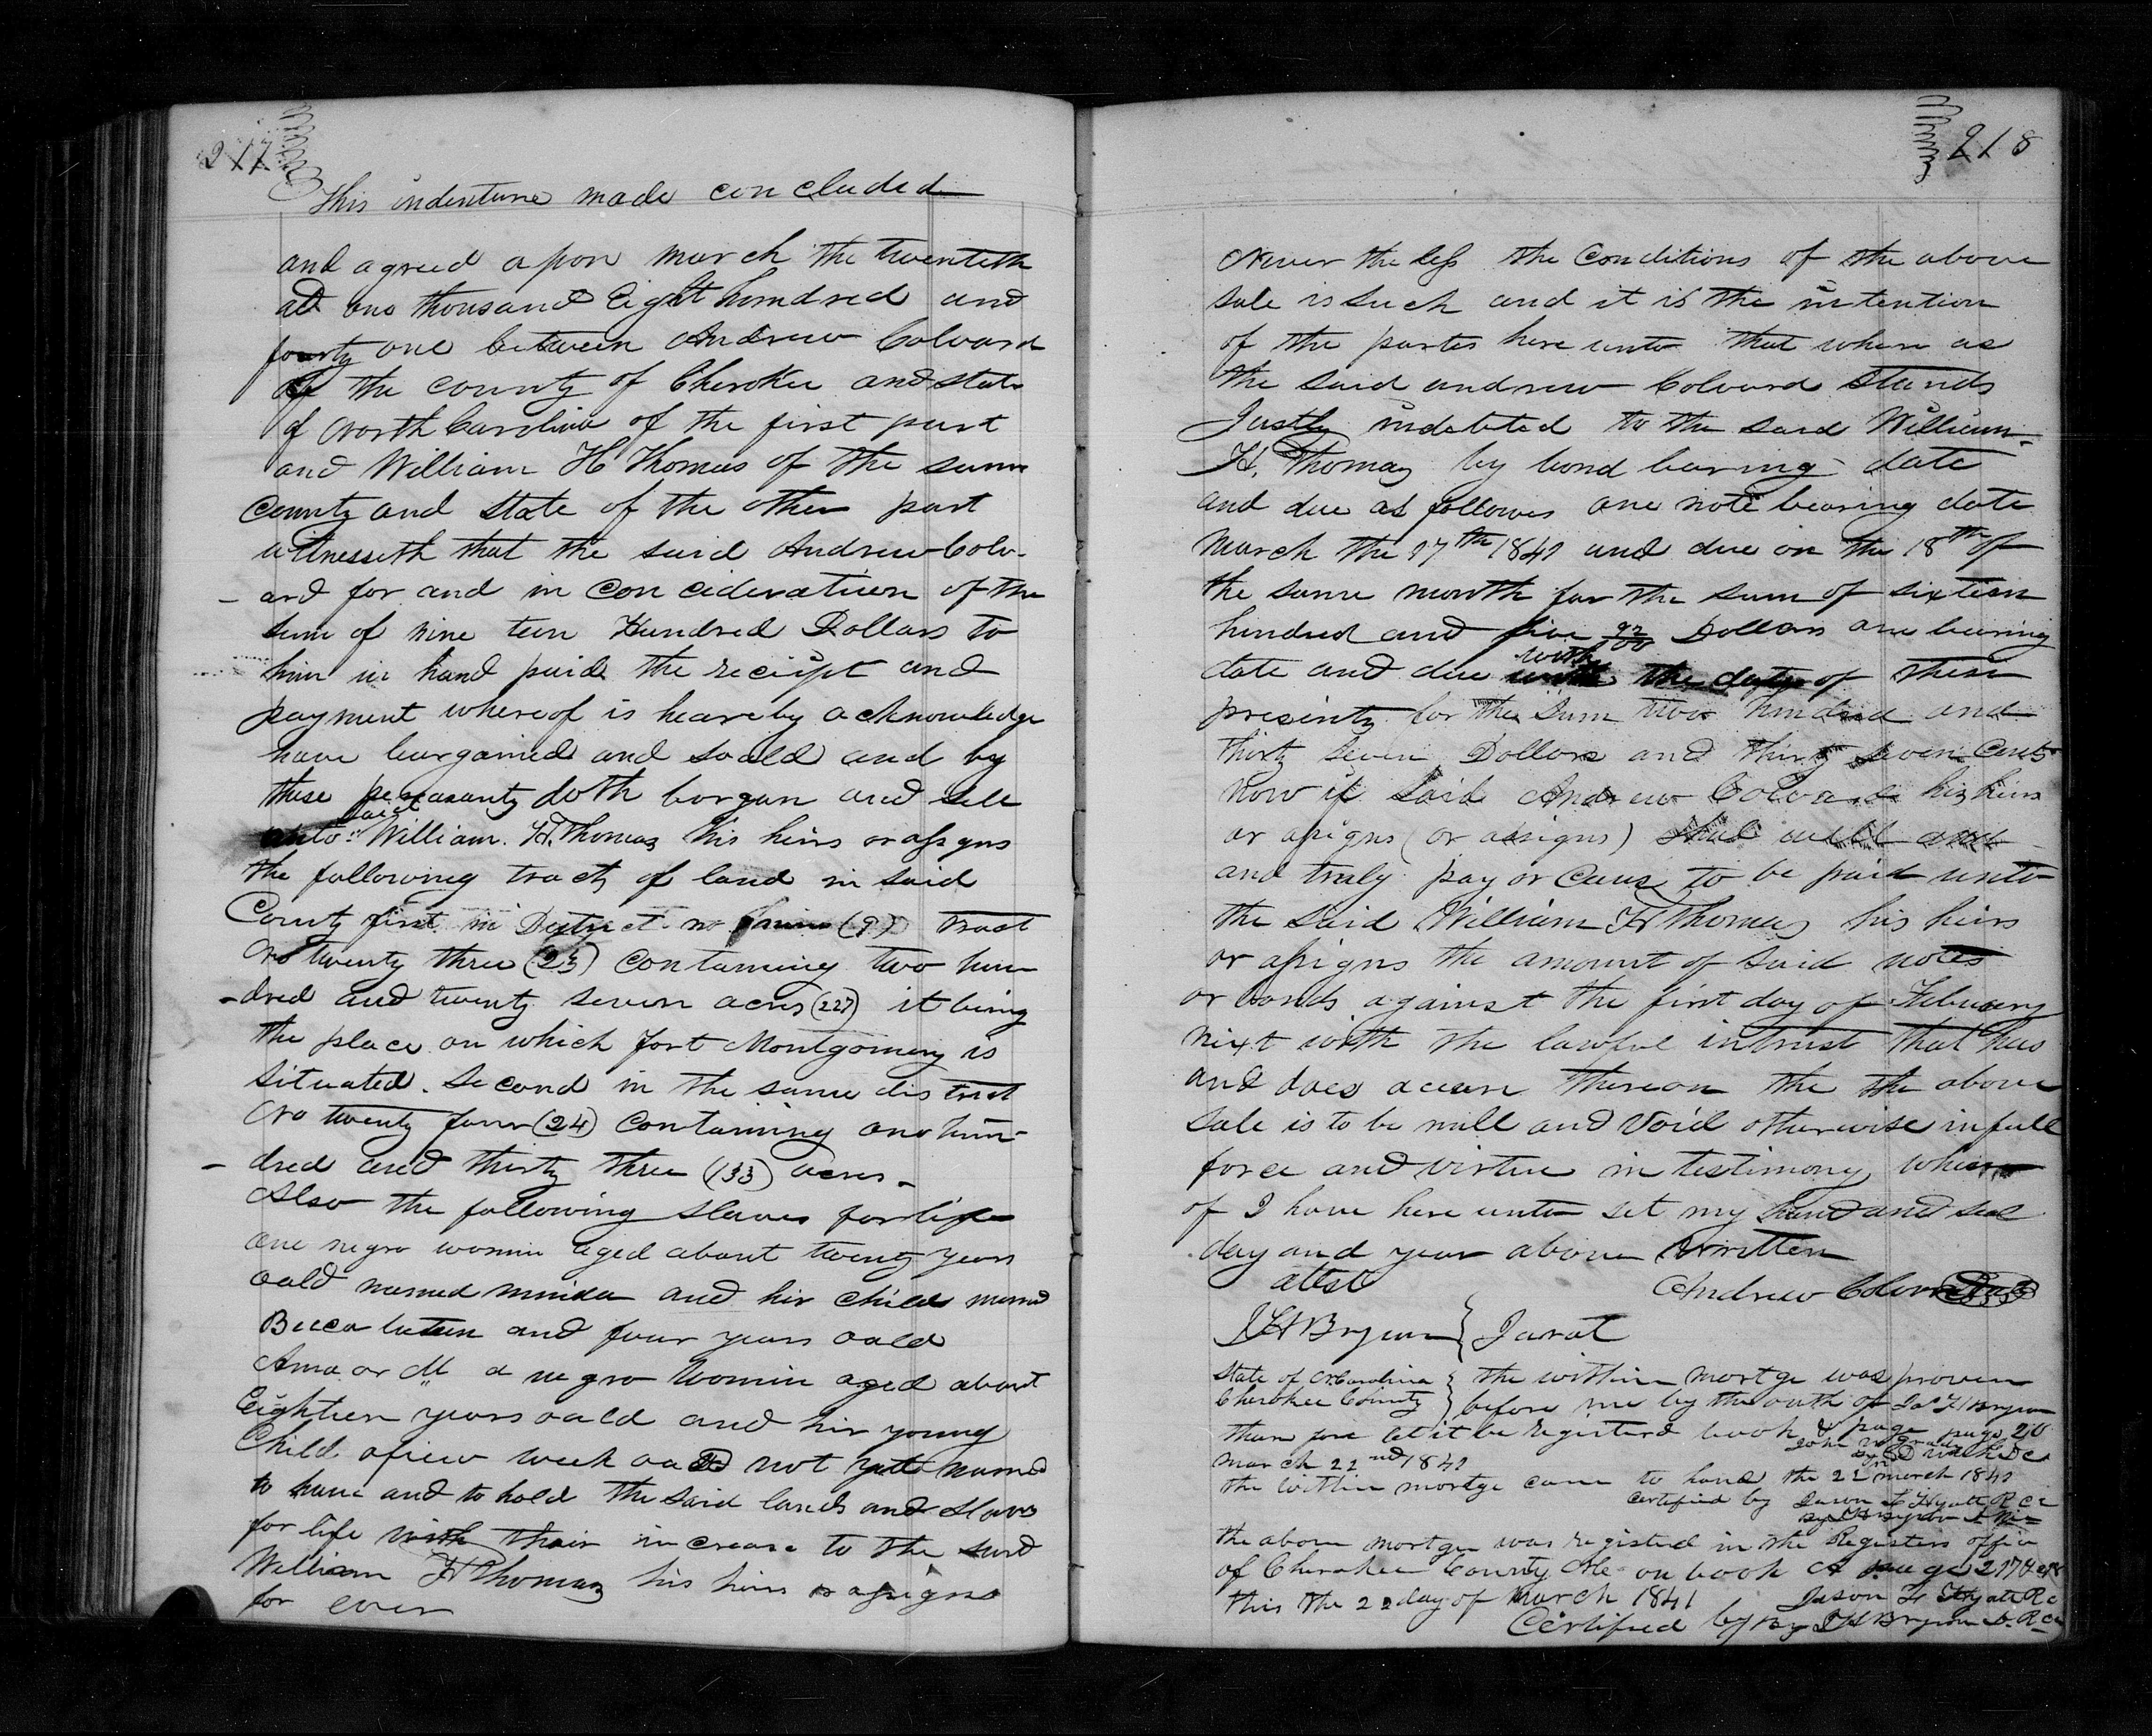 217
This indenture made concluded
and agreed apon march the twentieth
AD one thousand Eight hundred and
fourty one between Andrew Colvard
of the county of Cherokee and state
of North Carolina of the first part
and William H Thomas of the same
County and state of the other part
witnesseth that the said Andrew Colv-
-ard for and in Concideration of the
sum of nine teen Hundred Dollars to
him in hand paid the reciept and
payment whereof is heareby acknowledge
have bargained and soald and by
these doth bargan and sell
unto said William. H. Thomas his heirs or assigns
the following tracts of land in said
County first in District no nine (9) Tract
No twenty three (23) Containing two hun
-dred and twenty seven acres (227) it being
the place on which fort Montgomery is
situated. Second in the same district
No twenty four (24) Containing one hun-
-dred and thirty three (133) acres-
Also the following slaves for life
one negro womin aged about twenty years
oald named and hir child named
Becca and four years oald
or M a negro Womin aged about
Eighteen years oald and hir young
Child afiew week oald not yet named
to have and to hold the said lands and slaves
for life with thair increase to the said
William H Thomas his heirs or asigns
for ever
218
Never the less the Conditions of the above
sale is such and it is the intention
of the partes here unto that where as
the said andrew Colvard stands
Justly indebted to the said William-
H. Thomas by bond bearing date
and due as follows one note bearing date
March the 17th 1841 and due on the 18th of
the same month for the sum of sixteen
hundred and five Dollars one bearing
date and due with the date of these
presents for the sum two hundred and
thirty seven Dollars and thirty seven Cents
now if said Andrew Colvard his heirs
or asigns (or assigns) shal well
and truly pay or Caus to be paid unto
the said William H Thomas his heirs
or assigns the amount of said notes
or bonds against the first day of Febuary
next with the lawful intrust that has
and does accure thereon the the above
sale is to be null and void otherwise in full
force and virtue in testimony where
of I have here unto set my hand and seal
day and year above written
attest
Andrew Colvard Seal
J H Bryson } Jurat
State of N Carolina } the within mortge was proven
Cherokee County } before me by the oath of Jas H Bryson
there fore let it be registerd book & page page 210
John
March 22nd 1841
the within mortge came to hand the 22 march 1841
Certified by Jason H Hyatt R C C
the above mortge was registerd in the Registers office
of Cherokee County NC on book A page 217 & 218
this the 22 day of March 1841 Jason H Hyatt R C
Certified by By J H Bryson D. R C